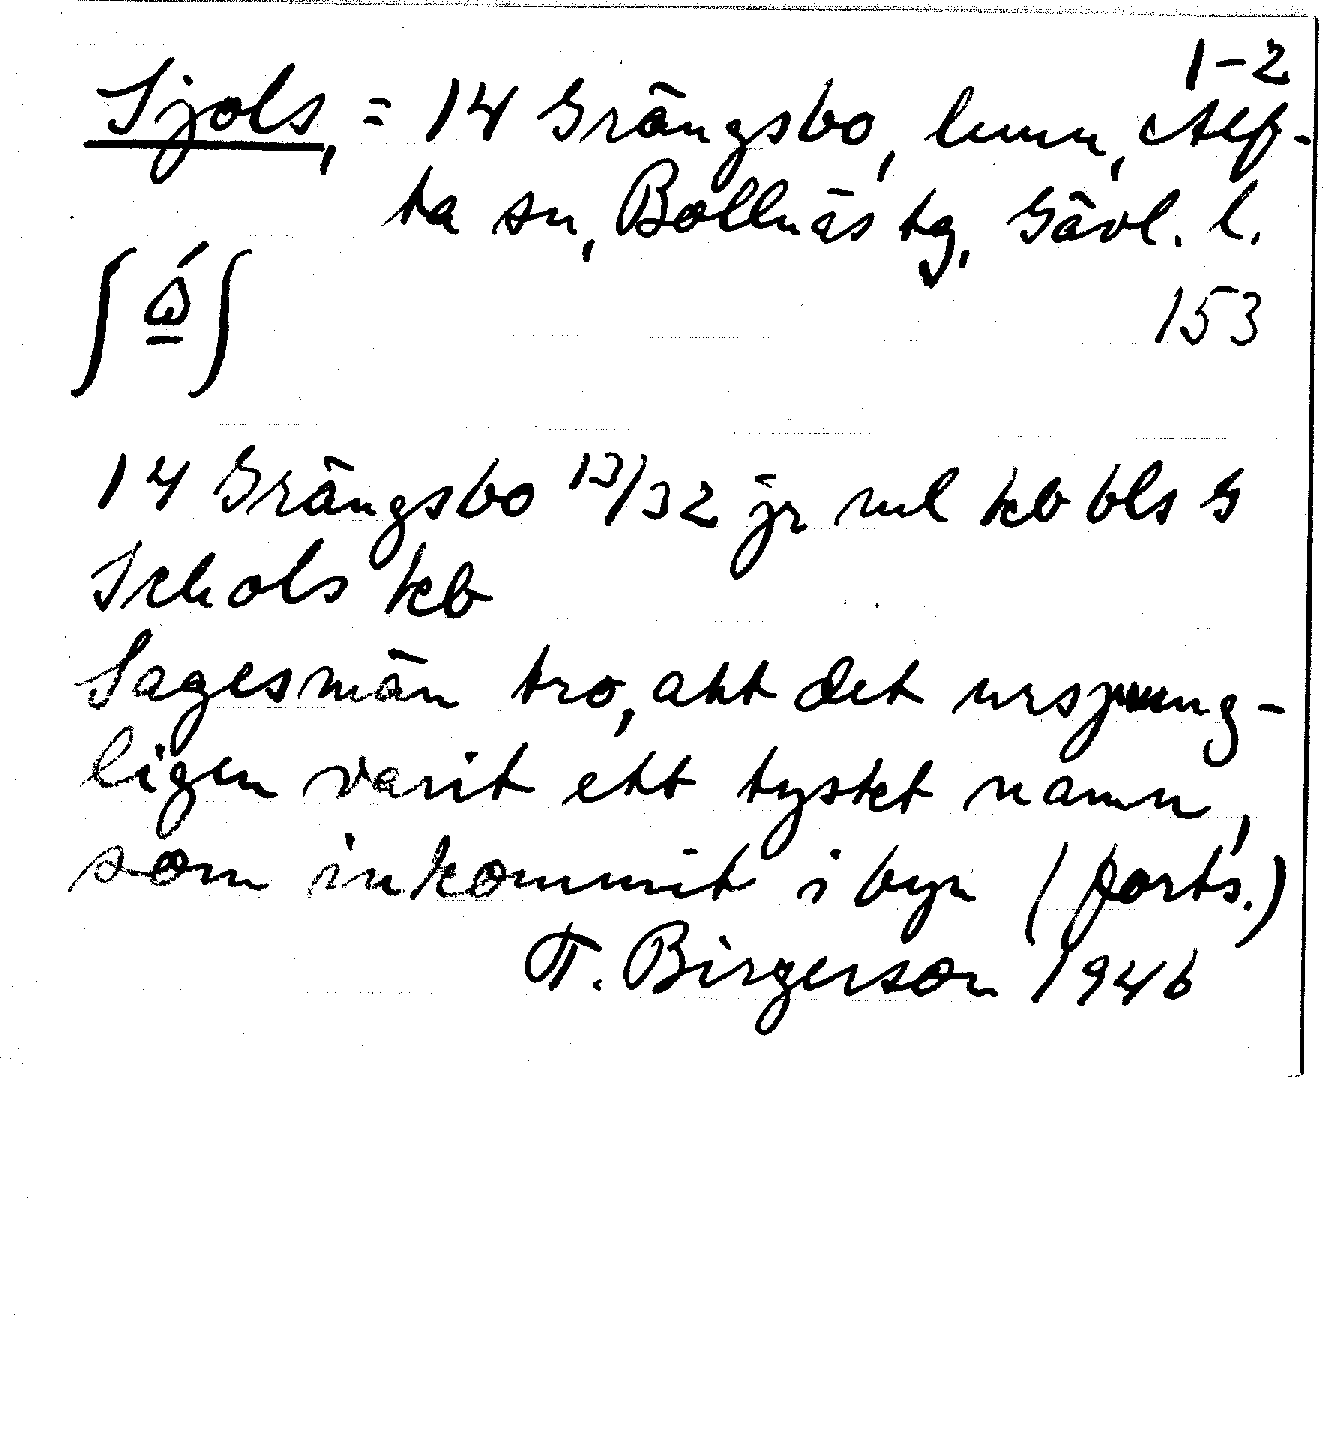 1-2
Sjols, = 14 Grängsbo, hmn, Alf-
ta sn, Bollnäs tg, Gävl. l.
153
14 Grängsbo 13/32 jr ml kb bls G
Schols kb
Sagesmän tro, att det ursprung-
ligen varit ett tyskt namn,
som inkommit i byn (forts.)
T. Birgerson 1946